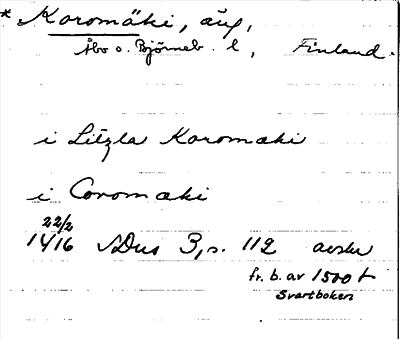 * Karomäki, äng,
Åbo o. Björneb. l, Finland.
i Litzla Karomaki
i Coromaki
22/2
1416 SDns 3, s. 112 avskr
fr. b. av 1500 t
Svartboken